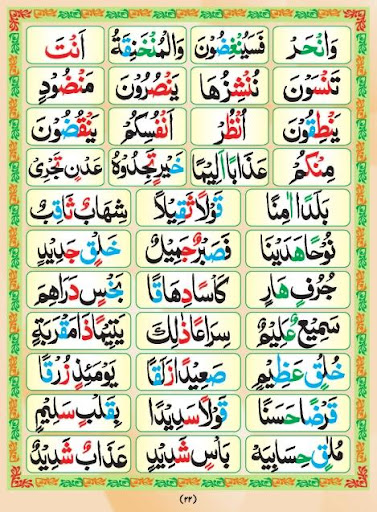 وَانْحَرْ فَسَيُنْغِضُوْنَ وَالْمُنْخَنِقَةُ اَنْتَ
تَنْسَوْنَ نُنْشِزُهَا يَنْصُرُوْنَ مَنْضُوْدٍ
يَنْطِقُوْنَ اُنْظُرْ اَنْفُسِكُمْ يَنْقُضُوْنَ
مِنْكُمْ عَذَابًا اَلِيْمًا خَيْرٍ تَجِدُوْهُ عَدْنٍ تَجْرِىْ
بَلَدًا اٰمِنًا قَوْلًا ثَقِيْلًا شِهَابٌ ثَاقِبٌ
نُوْحًا هَدَيْنَا فَصَبْرٌ جَمِيْلٌ خَلْقٍ جَدِيْدٍ
جُرُفٍ هَارٍ كَاْسًا دِهَاقًا بَخْسٍ دَرَاهِمَ
سَمِيْعٌ عَلِيْمٌ سِرَاعًا ذٰلِكَ يَتِيْمًا ذَا مَقْرَبَةٍ
خُلُقٍ عَظِيْمٍ صَعِيْدًا زَلَقًا يَوْمَئِذٍ زُرْقًا
قَرْضًا حَسَنًا قَوْلًا سَدِيْدًا بِقَلْبٍ سَلِيْمٍ
مُلٰقٍ حِسَابِيَهْ بَاْسٍ شَدِيْدٍ عَذَابٌ شَدِيْدٌ
(۲۲)